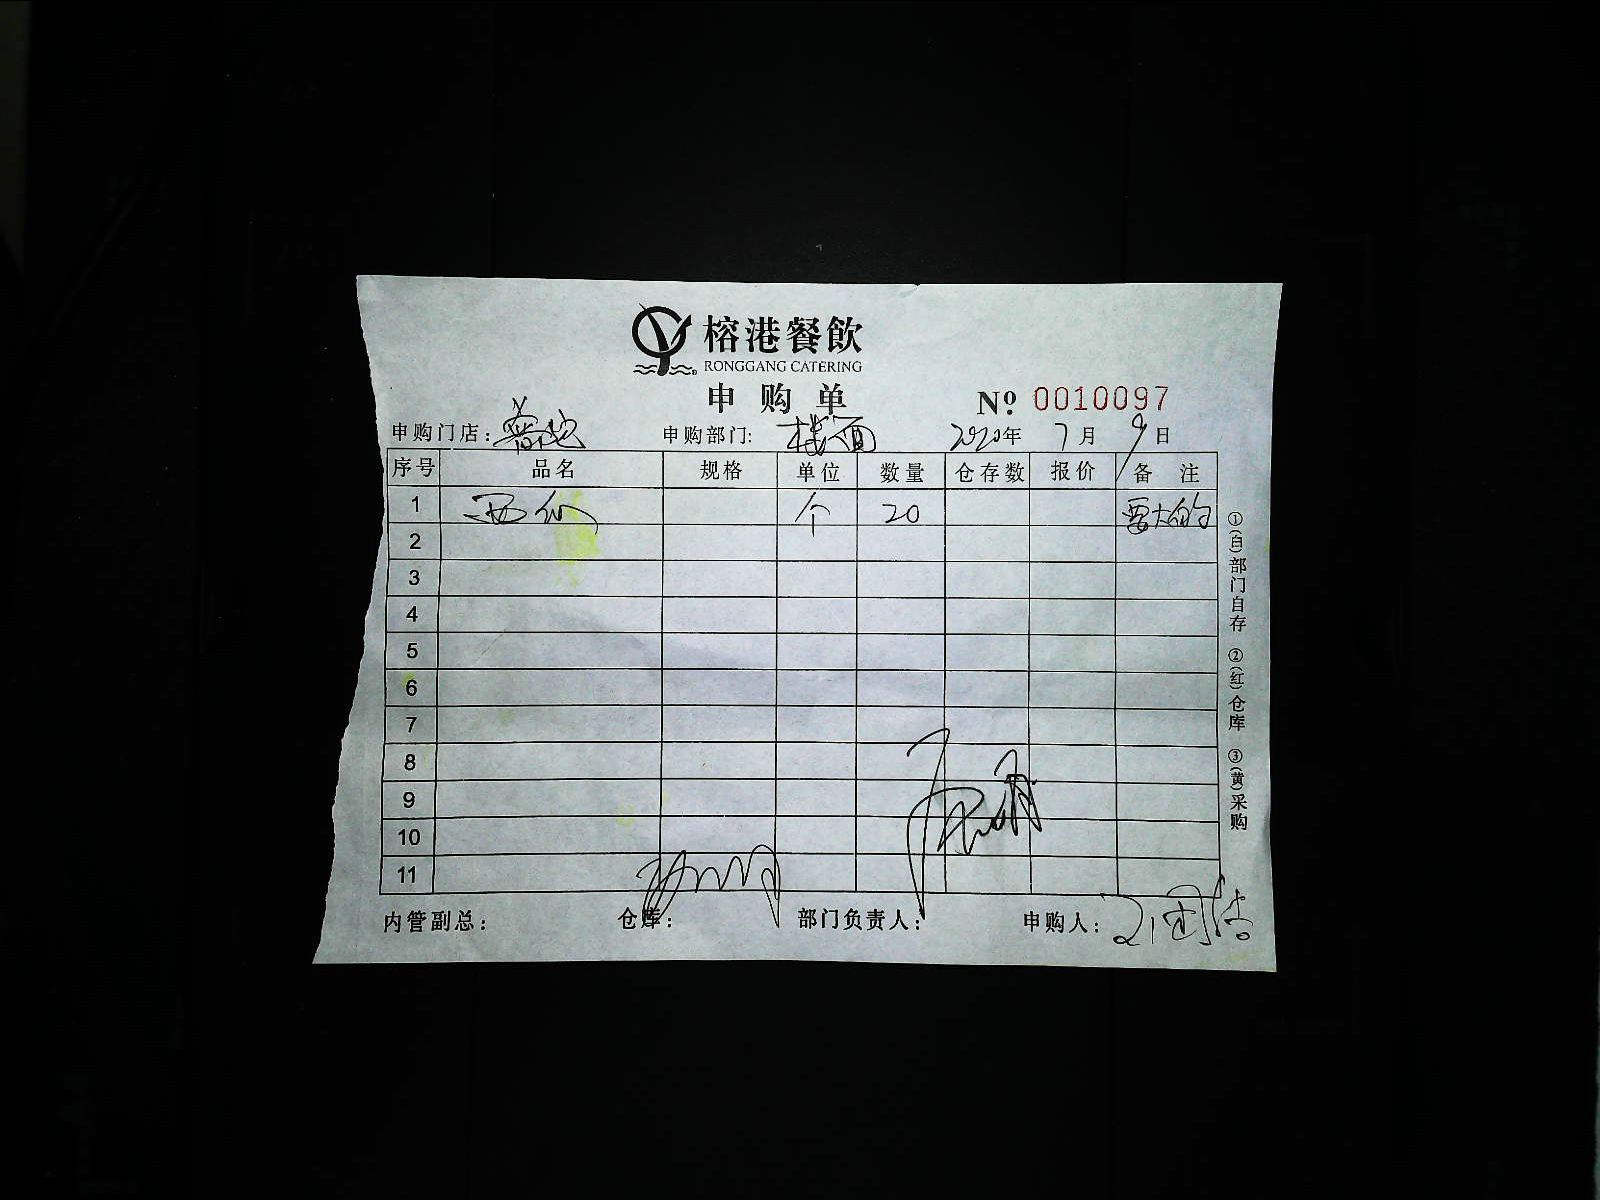 榕港餐飲
RONGGANG CATERING
申购单
Nº 0010097
申购门店: 申购部门: 楼面 2020年 7月 9日
序号 品名 规格 单位 数量 仓存数 报价 备注
1 西瓜 个 20 要大的
2
3
4
5
6
7
8
9
10
11
内管副总: 仓库: 部门负责人: 申购人:
①(白)部门自存 ②(红)仓库 ③(黄)采购